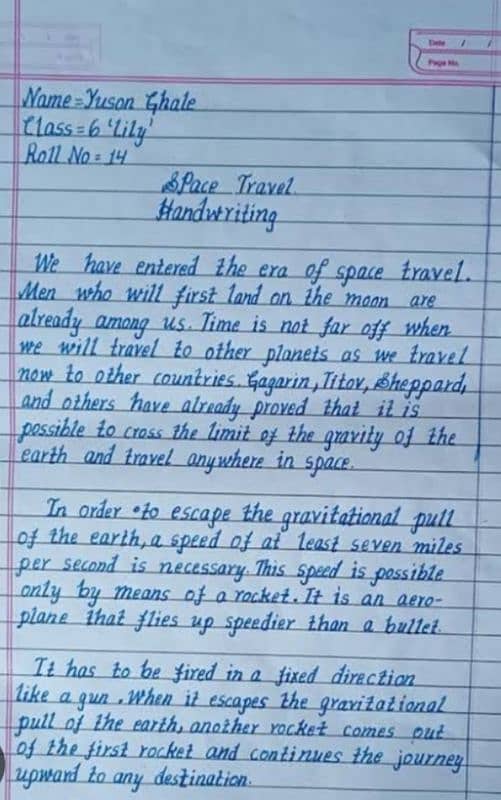 Date / /
Page No.
Name = Yuson Ghale
Class = 6 'Lily'
Roll No = 14
Space Travel
Handwriting
We have entered the era of space travel.
Men who will first land on the moon are
already among us. Time is not far off when
we will travel to other planets as we travel
now to other countries. Gagarin, Titov, Sheppard,
and others have already proved that it is
possible to cross the limit of the gravity of the
earth and travel anywhere in space.
In order to escape the gravitational pull
of the earth, a speed of at least seven miles
per second is necessary. This speed is possible
only by means of a rocket. It is an aero-
plane that flies up speedier than a bullet.
It has to be fired in a fixed direction
like a gun. When it escapes the gravitational
pull of the earth, another rocket comes out
of the first rocket and continues the journey
upward to any destination.